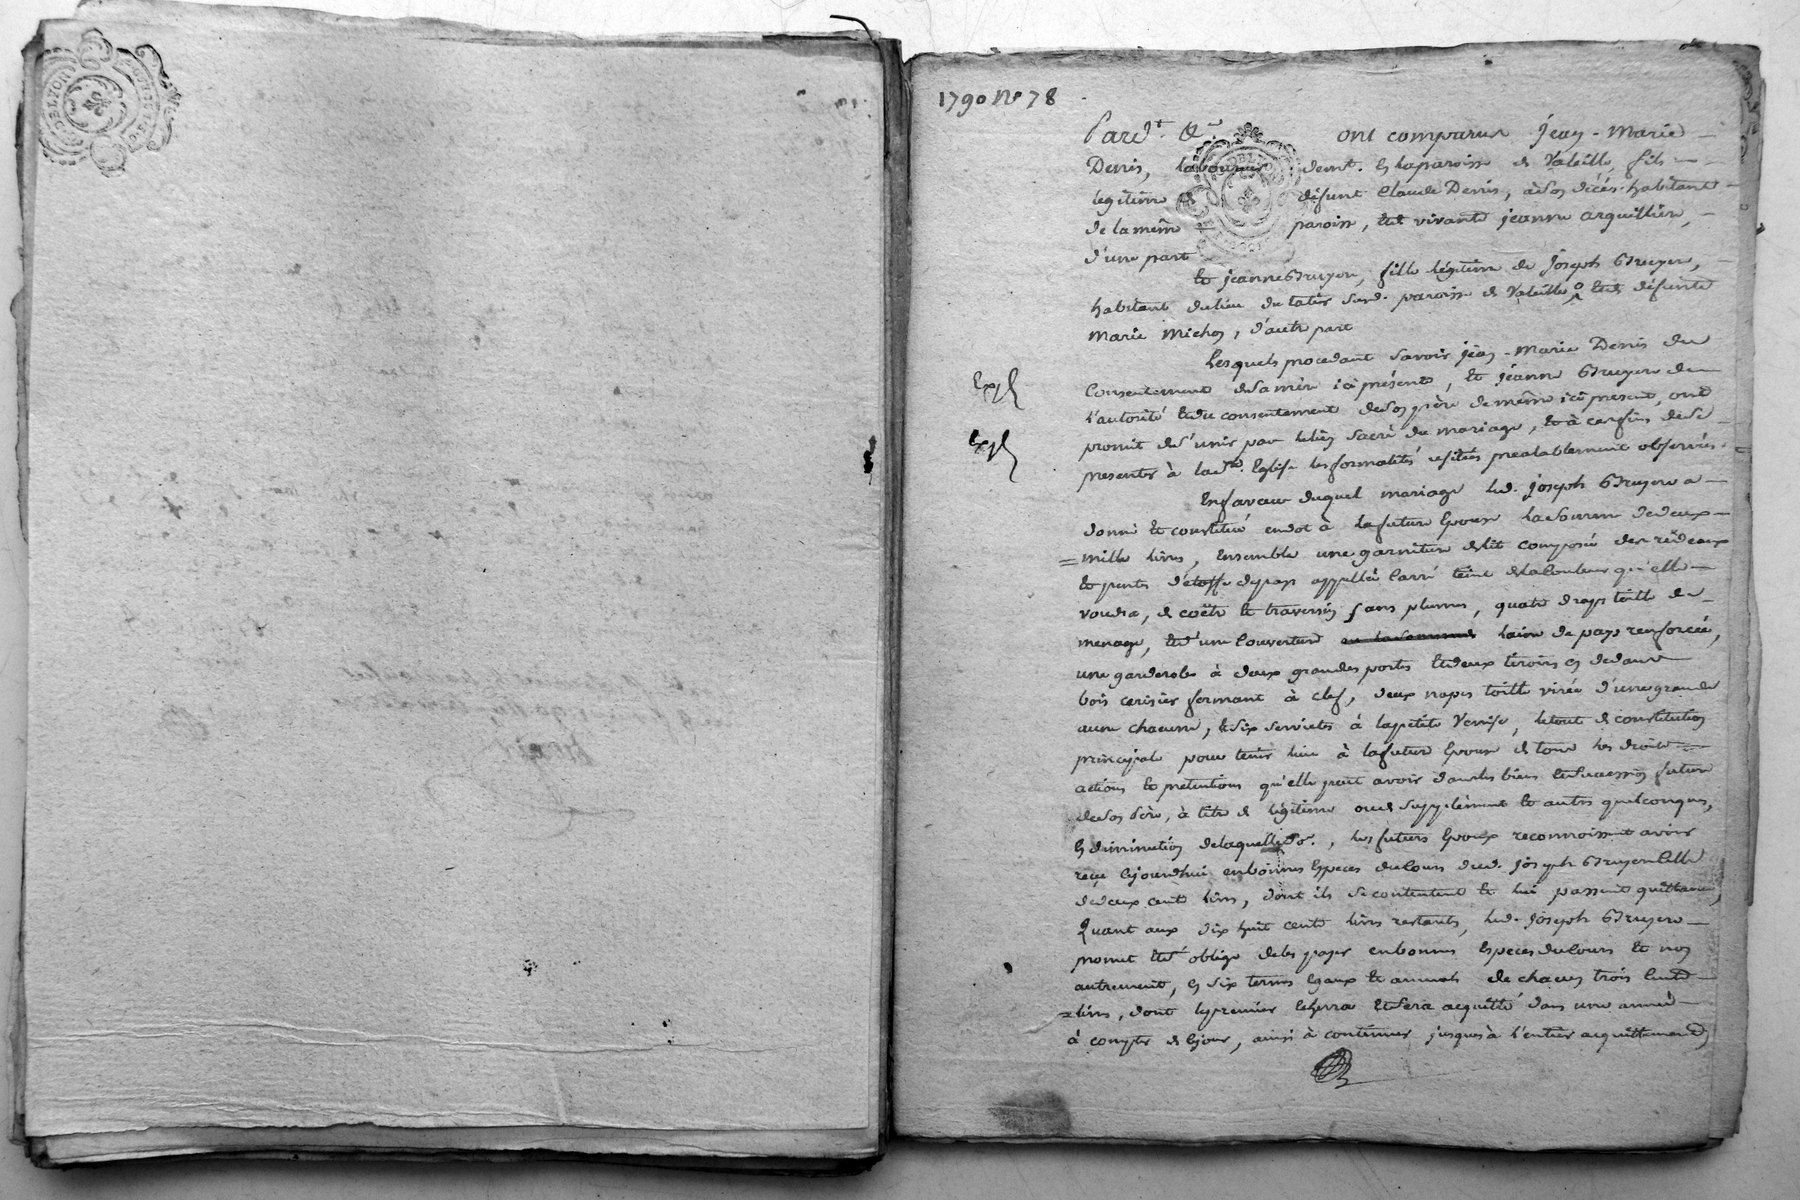 1790 No 78
Pard.t &.a ont comparus jean-Marie
Denis, laboureur demt. en la paroisse de Valeille, fils
légitime défunt Claude Denis, à son décés habitant
de la même paroisse, et de vivante jeanne arquillière,
d'une part
Et jeanne Bruyere, fille légitime de joseph Bruyere,
habitant du lieu du susd. paroisse de Valeille, et de défunte
Marie Michon, d'autre part
Lesquels procedant savoir jean-Marie Denis du
Consentement de sa mère ici présente, et jéanne Bruyere de
l'autorité et du consentement de son père de même ici present, ont
promit de s'unir par le lien sacré du mariage, et à ces fins de se
presenter à la Ste. Eglise les formalités préalablement observées.
Expé
Expé
En faveur duquel mariage led. joseph Bruyere a
donné et constitué en dot à la future Epouse la somme de deux
mille livres, Ensemble une garniture de lit composée de rideaux
et pentes d'étoffe de pays appellée Carré teint de la couleur qu'elle
voudra, de coëtre et traversin sans plumes, quatre draps toille de
menage, et d'une Couverture laine de pays renforcée,
une garderobe à deux grandes portes et deux tiroirs en dedans
bois cerisier fermant à clef, deux napes toille virée d'une grande
aune chacune, et six serviettes à la petite Venise, le tout de constitution
principale pour tenir lieu à la future Epouse de tous les droits
actions et pretentions qu'elle peut avoir dans les biens et succession future
de son père, à titre de légitime ou de supplément et autres quelconques,
En diminution de laquelle , les futurs Epoux reconnoissent avoir
reçu cejourdhui en bonnes Especes du Cours dud. joseph Bruyere Celle
de deux cents livres, dont ils se contentent et lui passent quittance,
Quant aux dix huit cents livres restants, led. joseph Bruyere
promet et s'oblige de les payer en bonnes Especes du Cours et non
autrement, en six termes Egaux et annuels de chacun trois Cents
livres, dont le premier Echerra et sera acquitté dans une année
à compter de ce jour, ainsi à continuer jusques à l'entier acquittement,